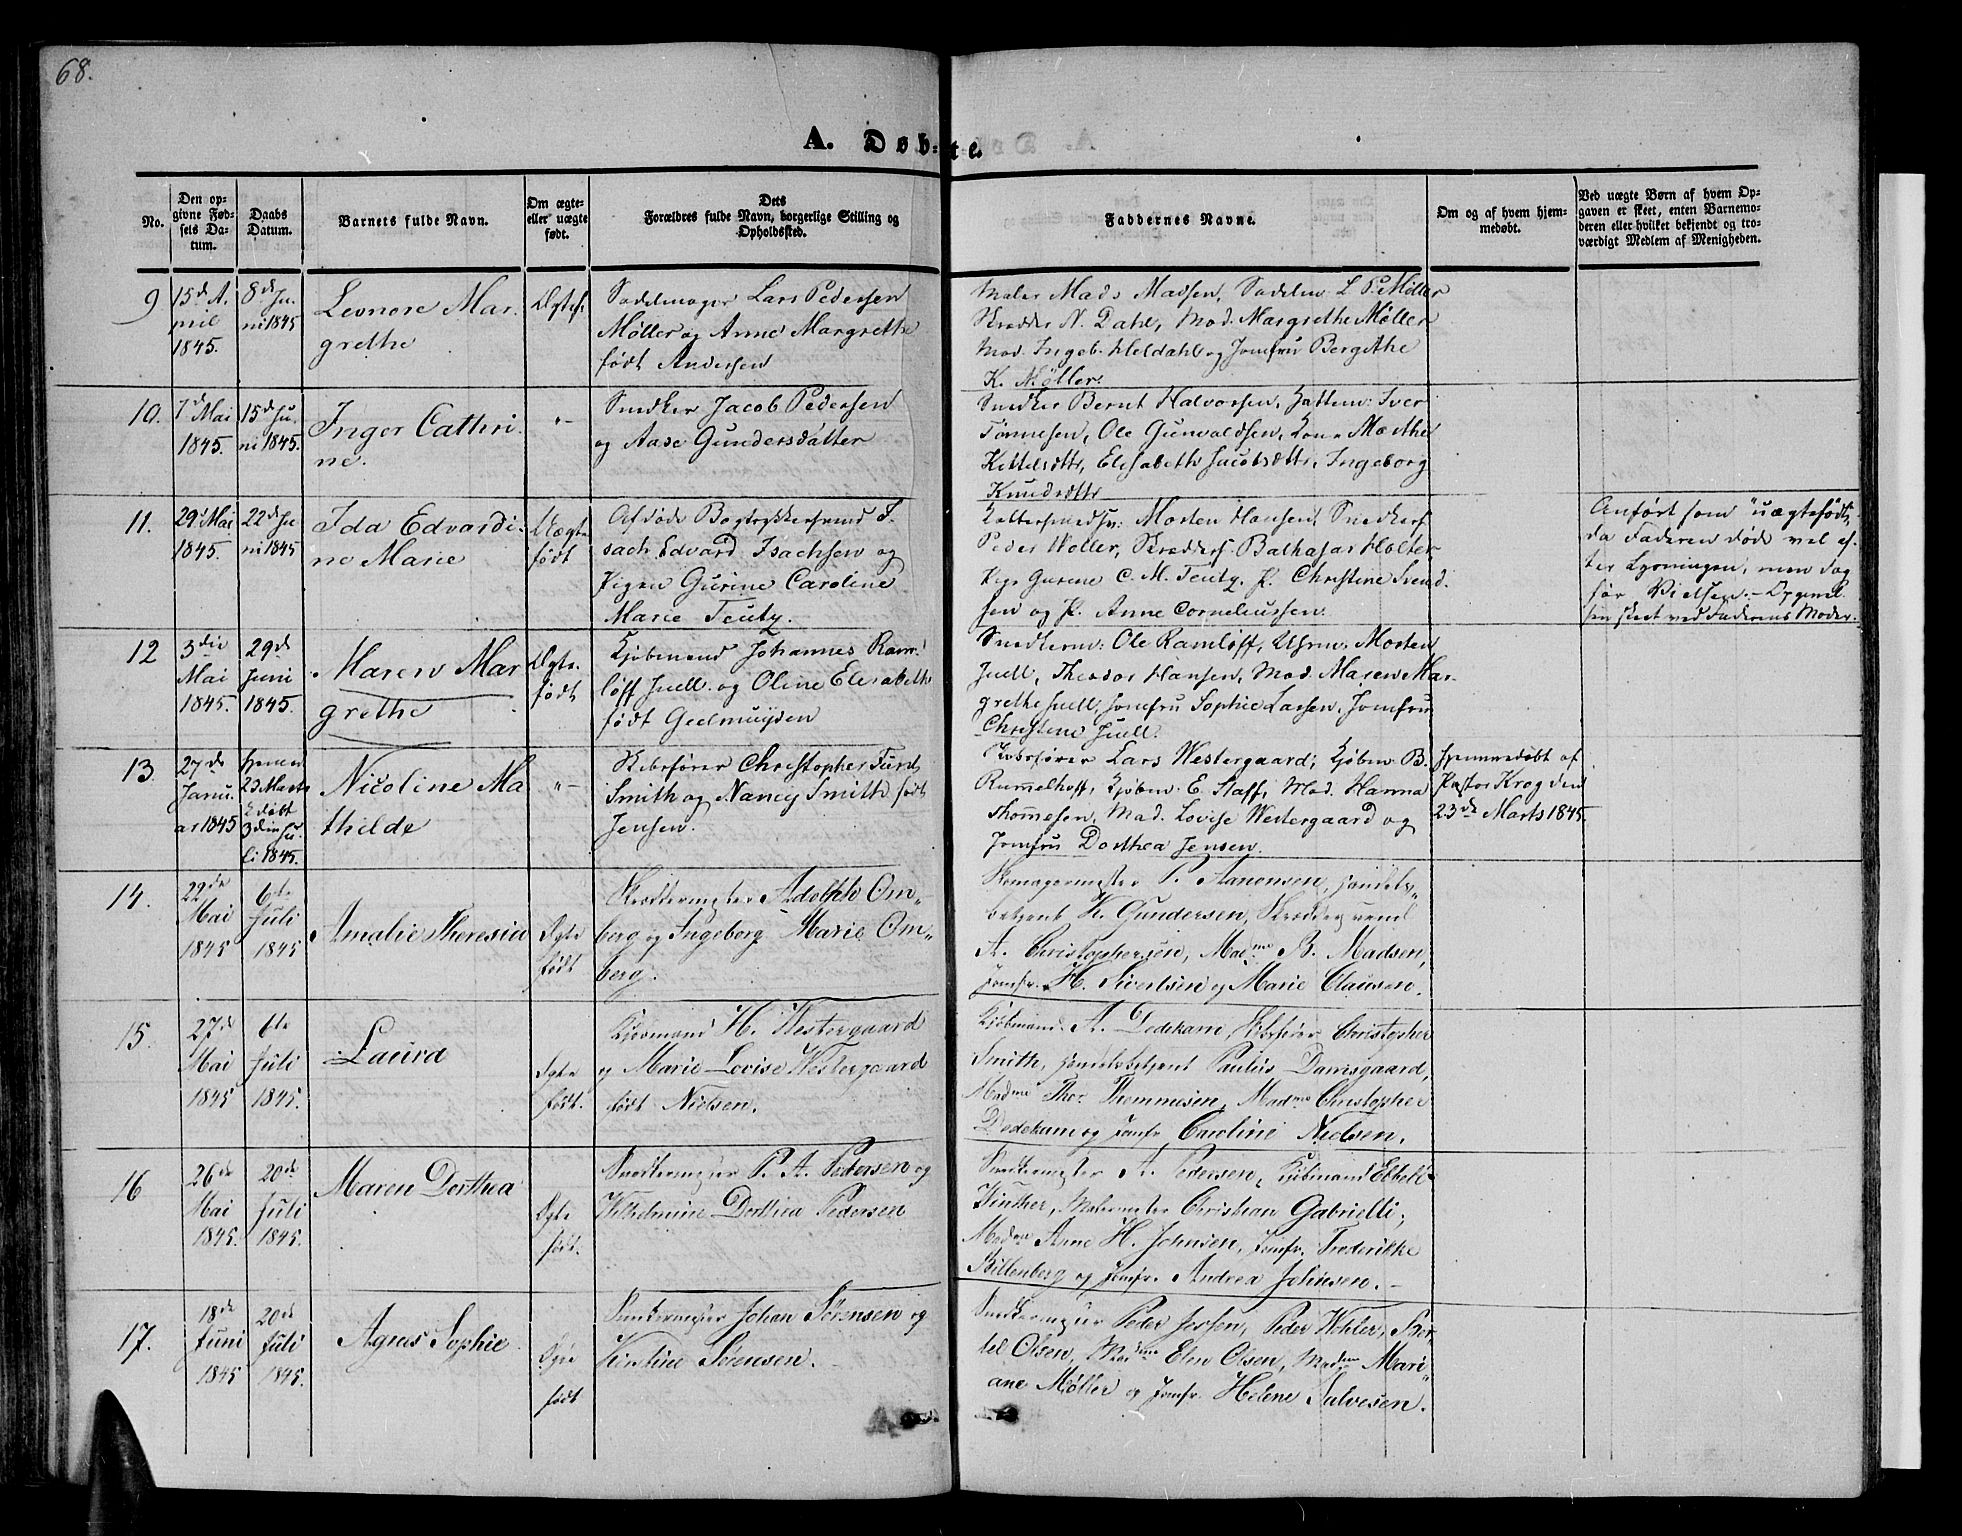 68.
A. Døb-te.
No.
Den op-
givne Fød-
sels Da-
tum.
Daabs
Datum.
Barnets fulde Navn.
Om ægte-
eller uægte
født.
Dets
Forældres fulde Navn, borgerlige Stilling og
Opholdssted.
Faddernes Navne.
Om og af hvem hjem-
medøbt.
Ved uægte Børn af hvem Op-
gaven er skeet, enten Barnemo-
deren eller hvilket bekjendt og tro-
værdigt Medlem af Menigheden.
9
15de A.
pril
1845.
8de Ju
ni 1845
Leonore Mar.
grethe
Ægtef.
Sadelmager Lars Pedersen
Møller og Anne Margrethe
født Andersen
Maler Mads Madsen, Sadelm. L P. Møller
Skrædder N. Dahl, Mad. Margrethe Møller
Mad. Ingeb. Heldahl og Jomfru Bergithe
K. Møller.
10.
7de Mai
1845.
15de Ju.
ni 1845.
Inger Cathri.
ne.
"-
Snedker Jacob Pedersen
og Aase Gundersdatter
Snedker Bernt Halvorsen, Iver
Tønnesen, Ole Gunvaldsen, Kone Marthe
Kittelsdttr, Elisabeth Jacobsdttr, Ingeborg
Knudsdttr
11.
29de Mai
1845.
22de Ju
ni 1845
Ida Edvardi.
ne Marie
Uægte
født
Afdøde Bogtrykkersvend I.
sach Edvard Isachsen og
Pigen Gurine Caroline
Marie Teutz.
Kobbersmedsv: Morten Hansen, Snedkers.
Peder Wøller, Skrædders. Balthasar Holter
Pige Gurine C. M. Teutz, P. Christine Svend.
sen og P. Anne Corneliussen.
Anført som "uægtefødt,
da Faderen døde vel ef-
ter Lysningen, men dog
før Vielsen. - Opgivel
sen skeet ved Faderens Moder.
12
3die
Mai
1845.
29de
Juni
1845.
Maren Mar
grethe
Ægte.
født
Kjøbmand Johannes Ram.
løff Juell og Oline Elisabeth
født Geelmuyden
Snedkerm: Ole Ramløff, Uhrm: Morten
Juell, Theodor Hansen, Mad. Maren Mar.
grethe Juell, Jomfru Sophie Larsen, Jomfru
Christine Juell.
13.
27de
Janu.
ar 1845
hjemme
23 Marts
døbt
3die Ju.
li 1845.
Nicoline Ma
thilde
"-
Skibsfører Christopher Lund
Smith og Nancy Smith født
Jensen.
Skibsfører Lars Westergaard, Kjøbm. B.
Rummelhoff, Kjøbm. E. Staff, Mad. Hanna
Thommesen, Mad. Lovise Westergaard og
Jomfru Dorthea Jensen.
Hjemmedøbt af
Pastor Krog den
23de Marts 1845.
14.
29de
Mai
1845
6te
Juli
1845
Amalie Theresia
Ægte
født
Skræddermester Adolph Om„
berg og Ingeborg Marie Om„
berg.
Skomagermester P. Aanonsen, Handels„
betjent K. Gundersen, Skræddersvend
A. Christophersen, Madme B. Madsen,
Jomfr. H. Sivertsen og Marie Clausen.
15.
27de
Mai
1845
6te
Juli
1845.
Laura
Ægte
født.
Kjøbmand H. Westergaard
og Marie Lovise Westergaard
født Nielsen.
Kjøbmand A. Dedekam, Skibsfører Christopher
Smith, Handelsbetjent Paulus Damsgaard,
Madme Thor Thommesen, Madme Christopher
Dedekam og Jomfr. Caroline Nielsen.
16
26de
Mai
1845.
20de
Juli
1845.
Maren Dorthea
Ægte
født.
Snedkermester P. A. Pedersen og
Wilhelmine Dorthea Pedersen
Snedkermester A. Pedersen, Kjøbmand Ebbell
Winther, Malermester Christian Gabrielli,
Madme Anne H. Johnsen, Jomfr. Frederikke
Billenberg og Jomfr. Andrea Johnsen. -
17.
18de
Juni
1845
20de
Juli
1845.
Agnes Sophie.
Ægte
født
Snedkermester Johan Sørensen og
Kirstine Sørensen.
Snedkermester Peder Jessen, Peder Wøhler, Ber„
tel Olsen, Madme Elen Olsen, Madme Mari„
ane Møller og Jomfr. Helene Salvesen.